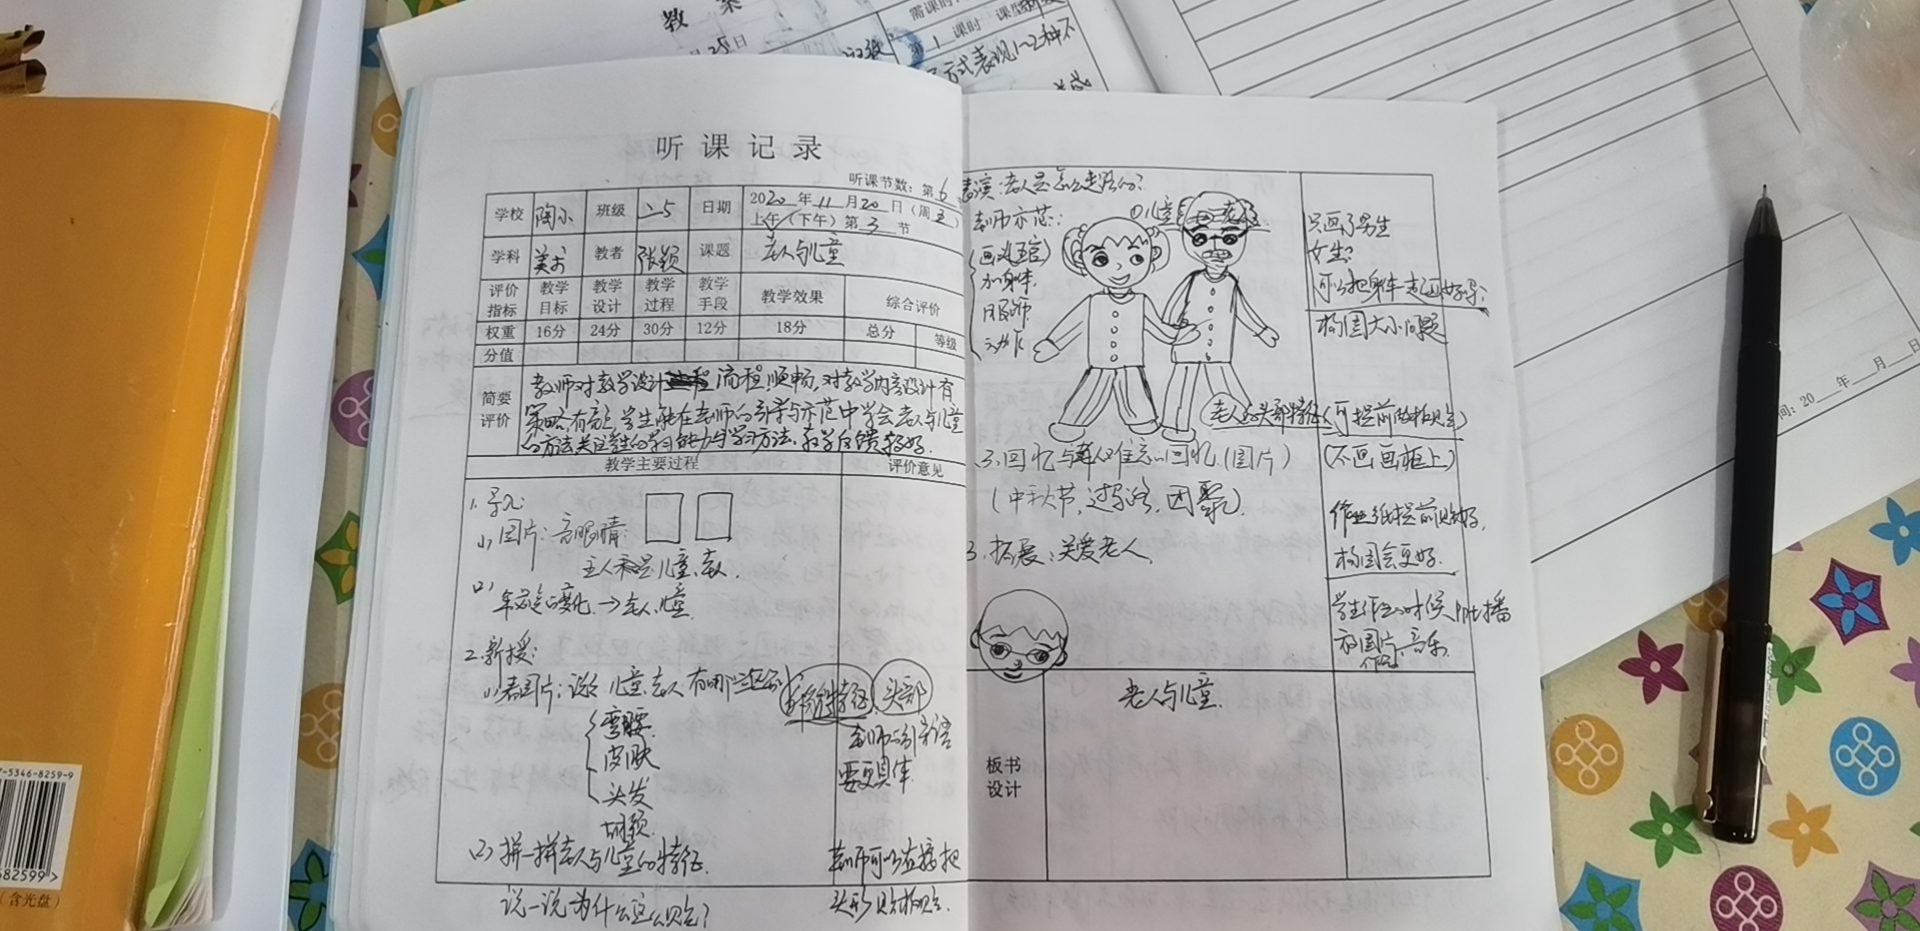 教 案
月25日
第 1 课时
方式表现1~2种不
听课记录
听课节数：第 6
学校 陶小 班级 二5 日期 2020年11月20日（周五）
上午（下午）第 3 节
学科 美术 教者 张颖 课题 老人与儿童
评价指标 教学目标 教学设计 教学过程 教学手段 教学效果 综合评价
权重 16分 24分 30分 12分 18分 总分 等级
分值
简要评价
教师对教学设计流程顺畅，对教学内容设计有
策略，有亮，学生能在老师的引导与示范中学会老人与儿童
的方法关注学生的学习能力与学习方法，教学反馈较好.
教学主要过程 评价意见
1.导入:
(1) 图片：音眼睛:
主人 是儿童、老人.
(2) 年龄的变化 → 老人、儿童
2.新授:
(1)看图片：说说 儿童、老人有哪些区分 头部
弯腰.
皮肤
头发
胡须.
老师的引导语
要更具体.
(2) 拼一拼老人与儿童的特征.
说一说为什么这么贴?
老师可以直接把
头形贴
表演：老人是怎么走路的?
老师示范:
①儿童 老人
(画头五官)
加身体.
服饰
动作
只画了男生
女生?
可以把身体一起画好导:
构图大小问题
老人的头部特征(可提前
(不画画框上)
3.回忆与老人难忘的回忆.(图片)
(中秋节, 团聚).
作业纸提前贴好,
构图会更好.
3.拓展：关爱老人.
学生作业的时候 PPT播
图片 音乐
作品
板书设计
老人与儿童.
间：20 年 月 日
7-5346-8259-9
82599>
（含光盘）